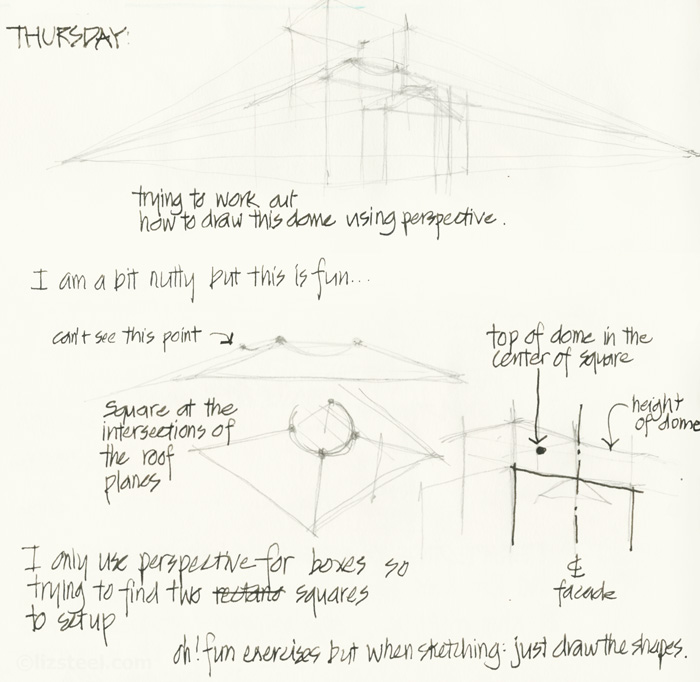 THURSDAY:
trying to work out
how to draw this dome using perspective.
I am a bit nutty but this is fun...
can't see this point
top of dome in the
center of square
Square at the
intersections of
the roof
planes
height
of dome
℄
facade
I only use perspective for boxes so
trying to find two rectano squares
to set up
oh! fun exercises but when sketching: just draw the shapes.
©lizsteel.com